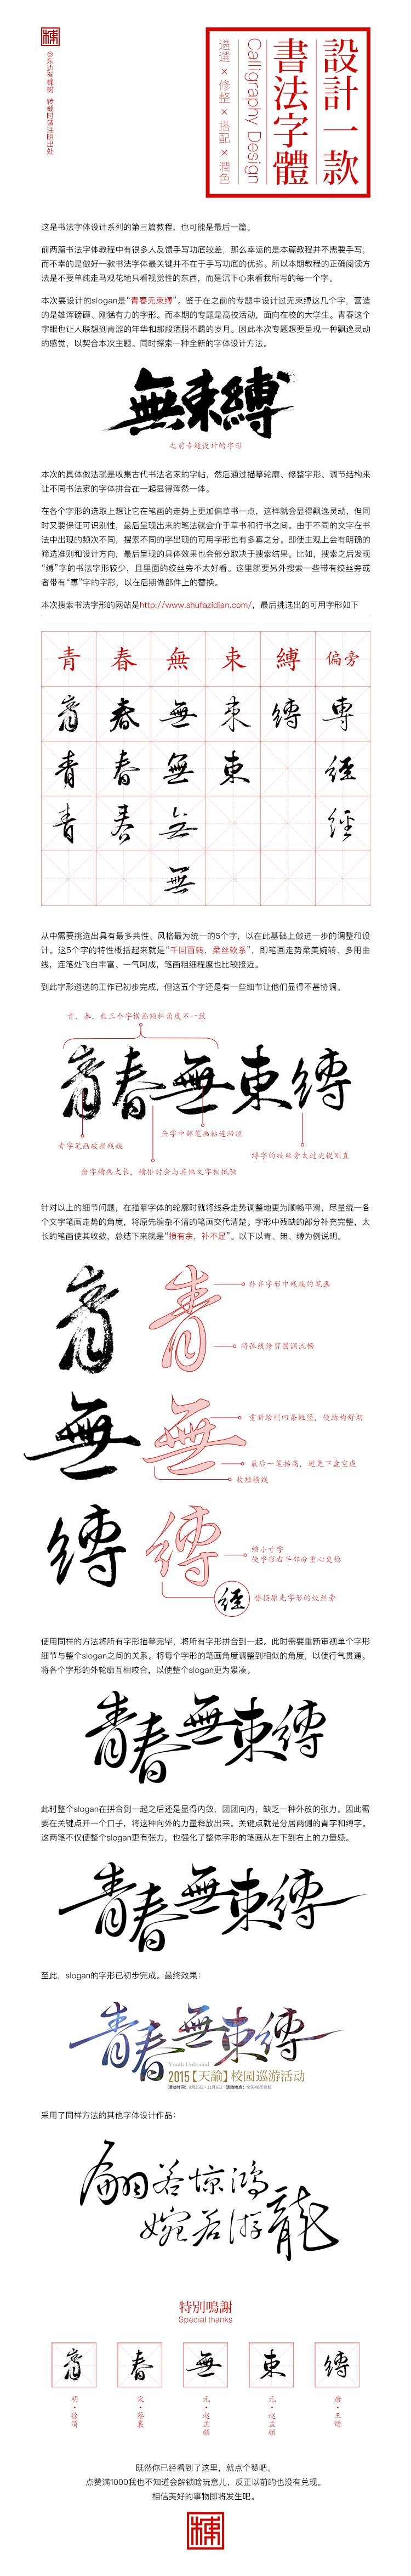 棟
@东边有棟树 转载时请注明出处
設計一款
書法字體
Calligraphy Design
遴選×修整×搭配×潤色
这是书法字体设计系列的第三篇教程，也可能是最后一篇。
前两篇书法字体教程中有很多人反馈手写功底较差，那么幸运的是本篇教程并不需要手写，
而不幸的是做好一款书法字体最关键并不在于手写功底的优劣。所以本期教程的正确阅读方
法是不要单纯走马观花地只看视觉性的东西，而是沉下心来看我所写的每一个字。
本次要设计的slogan是“青春无束缚”。鉴于在之前的专题中设计过无束缚这几个字，营造
的是雄浑磅礴、刚猛有力的字形。而本期的专题是高校活动，面向在校的大学生。青春这个
字眼也让人联想到青涩的年华和那段洒脱不羁的岁月。因此本次专题想要呈现一种飘逸灵动
的感觉，以契合本次主题。同时探索一种全新的字体设计方法。
無束縛
之前专题设计的字形
本次的具体做法就是收集古代书法名家的字帖，然后通过描摹轮廓、修整字形、调节结构来
让不同书法家的字体拼合在一起显得浑然一体。
在各个字形的选取上想让它在笔画的走势上更加偏草书一点，这样就会显得飘逸灵动，但同
时又要保证可识别性，最后呈现出来的笔法就会介于草书和行书之间。由于不同的文字在书
法中出现的频次不同，搜索不同的字出现的可用字形也有多寡之分。即使主观上会有明确的
筛选准则和设计方向，最后呈现的具体效果也会部分取决于搜索结果。比如，搜索之后发现
“缚”字的书法字形较少，且里面的绞丝旁不太好看。这里就要另外搜索一些带有绞丝旁或
者带有“専”字的字形，以在后期做部件上的替换。
本次搜索书法字形的网站是http://www.shufazidian.com/，最后挑选出的可用字形如下
青 春 無 束 縛 偏旁
青 春 無 束 縛 専
青 春 無 束 經
青 春 無 經
無
从中需要挑选出具有最多共性、风格最为统一的5个字，以在此基础上做进一步的调整和设
计。这5个字的特性概括起来就是“千回百转，柔丝软系”，即笔画走势柔美婉转、多用曲
线，连笔处飞白丰富、一气呵成，笔画粗细程度也比较接近。
到此字形遴选的工作已初步完成，但这五个字还是有一些细节让他们显得不甚协调。
青、春、無三个字横画倾斜角度不一致
青春無束縛
無字中部笔画粘连滞涩
青字笔画破损残缺
縛字的绞丝旁太过尖锐刚直
無字横画太长，横排时会与其他文字相抵触
针对以上的细节问题，在描摹字体的轮廓时就将线条走势调整地更为顺畅平滑，尽量统一各
个文字笔画走势的角度，将原先缠杂不清的笔画交代清楚。字形中残缺的部分补充完整，太
长的笔画使其收敛，总结下来就是“损有余，补不足”。以下以青、無、縛为例说明。
青 青
补齐字形中残缺的笔画
将弧线修剪圆润流畅
無 無
重新绘制四条短竖，使结构舒朗
最后一笔抬高，避免下盘空虚
收短横线
縛 縛
缩小寸字
使字形右半部分重心更稳
經
替换原先字形的绞丝旁
使用同样的方法将所有字形描摹完毕，将所有字形拼合到一起。此时需要重新审视单个字形
细节与整个slogan之间的关系。将每个字形的笔画角度调整到相似的角度，以使行气贯通。
将各个字形的外轮廓互相咬合，以使整个slogan更为紧凑。
青春無束縛
此时整个slogan在拼合到一起之后还是显得内敛，团团向内，缺乏一种外放的张力。因此需
要在关键点开一个口子，将这种向外的力量释放出来。关键点就是分居两侧的青字和縛字。
这两笔不仅使整个slogan更有张力，也强化了整体字形的笔画从左下到右上的力量感。
青春無束縛
至此，slogan的字形已初步完成。最终效果：
青春無束縛
Youth Unbound
2015【天諭】校园巡游活动
活动时间：9月25日-11月6日 活动地点：全国40所高校
采用了同样方法的其他字体设计作品：
翩若惊鸿
婉若游龍
特別鳴謝
Special thanks
青 春 無 東 縛
明·徐渭
宋·蔡襄
元·赵孟頫
元·赵孟頫
唐·王绪
既然你已经看到了这里，就点个赞吧。
点赞满1000我也不知道会解锁啥玩意儿，反正以前的也没有兑现。
相信美好的事物即将发生吧。
棟